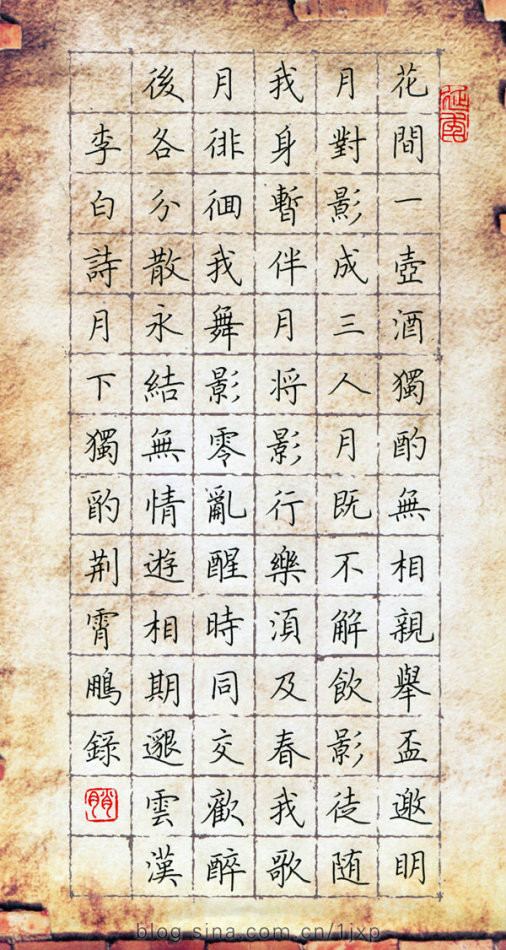 花間一壺酒獨酌無相親舉盃邀明
月對影成三人月既不解飲影徒随
我身暫伴月将影行樂湏及春我歌
月徘徊我舞影零亂醒時同交歡醉
後各分散永結無情遊相期邈雲漢
李白詩月下獨酌荆霄鵬錄
blog.sina.com.cn/1jxp